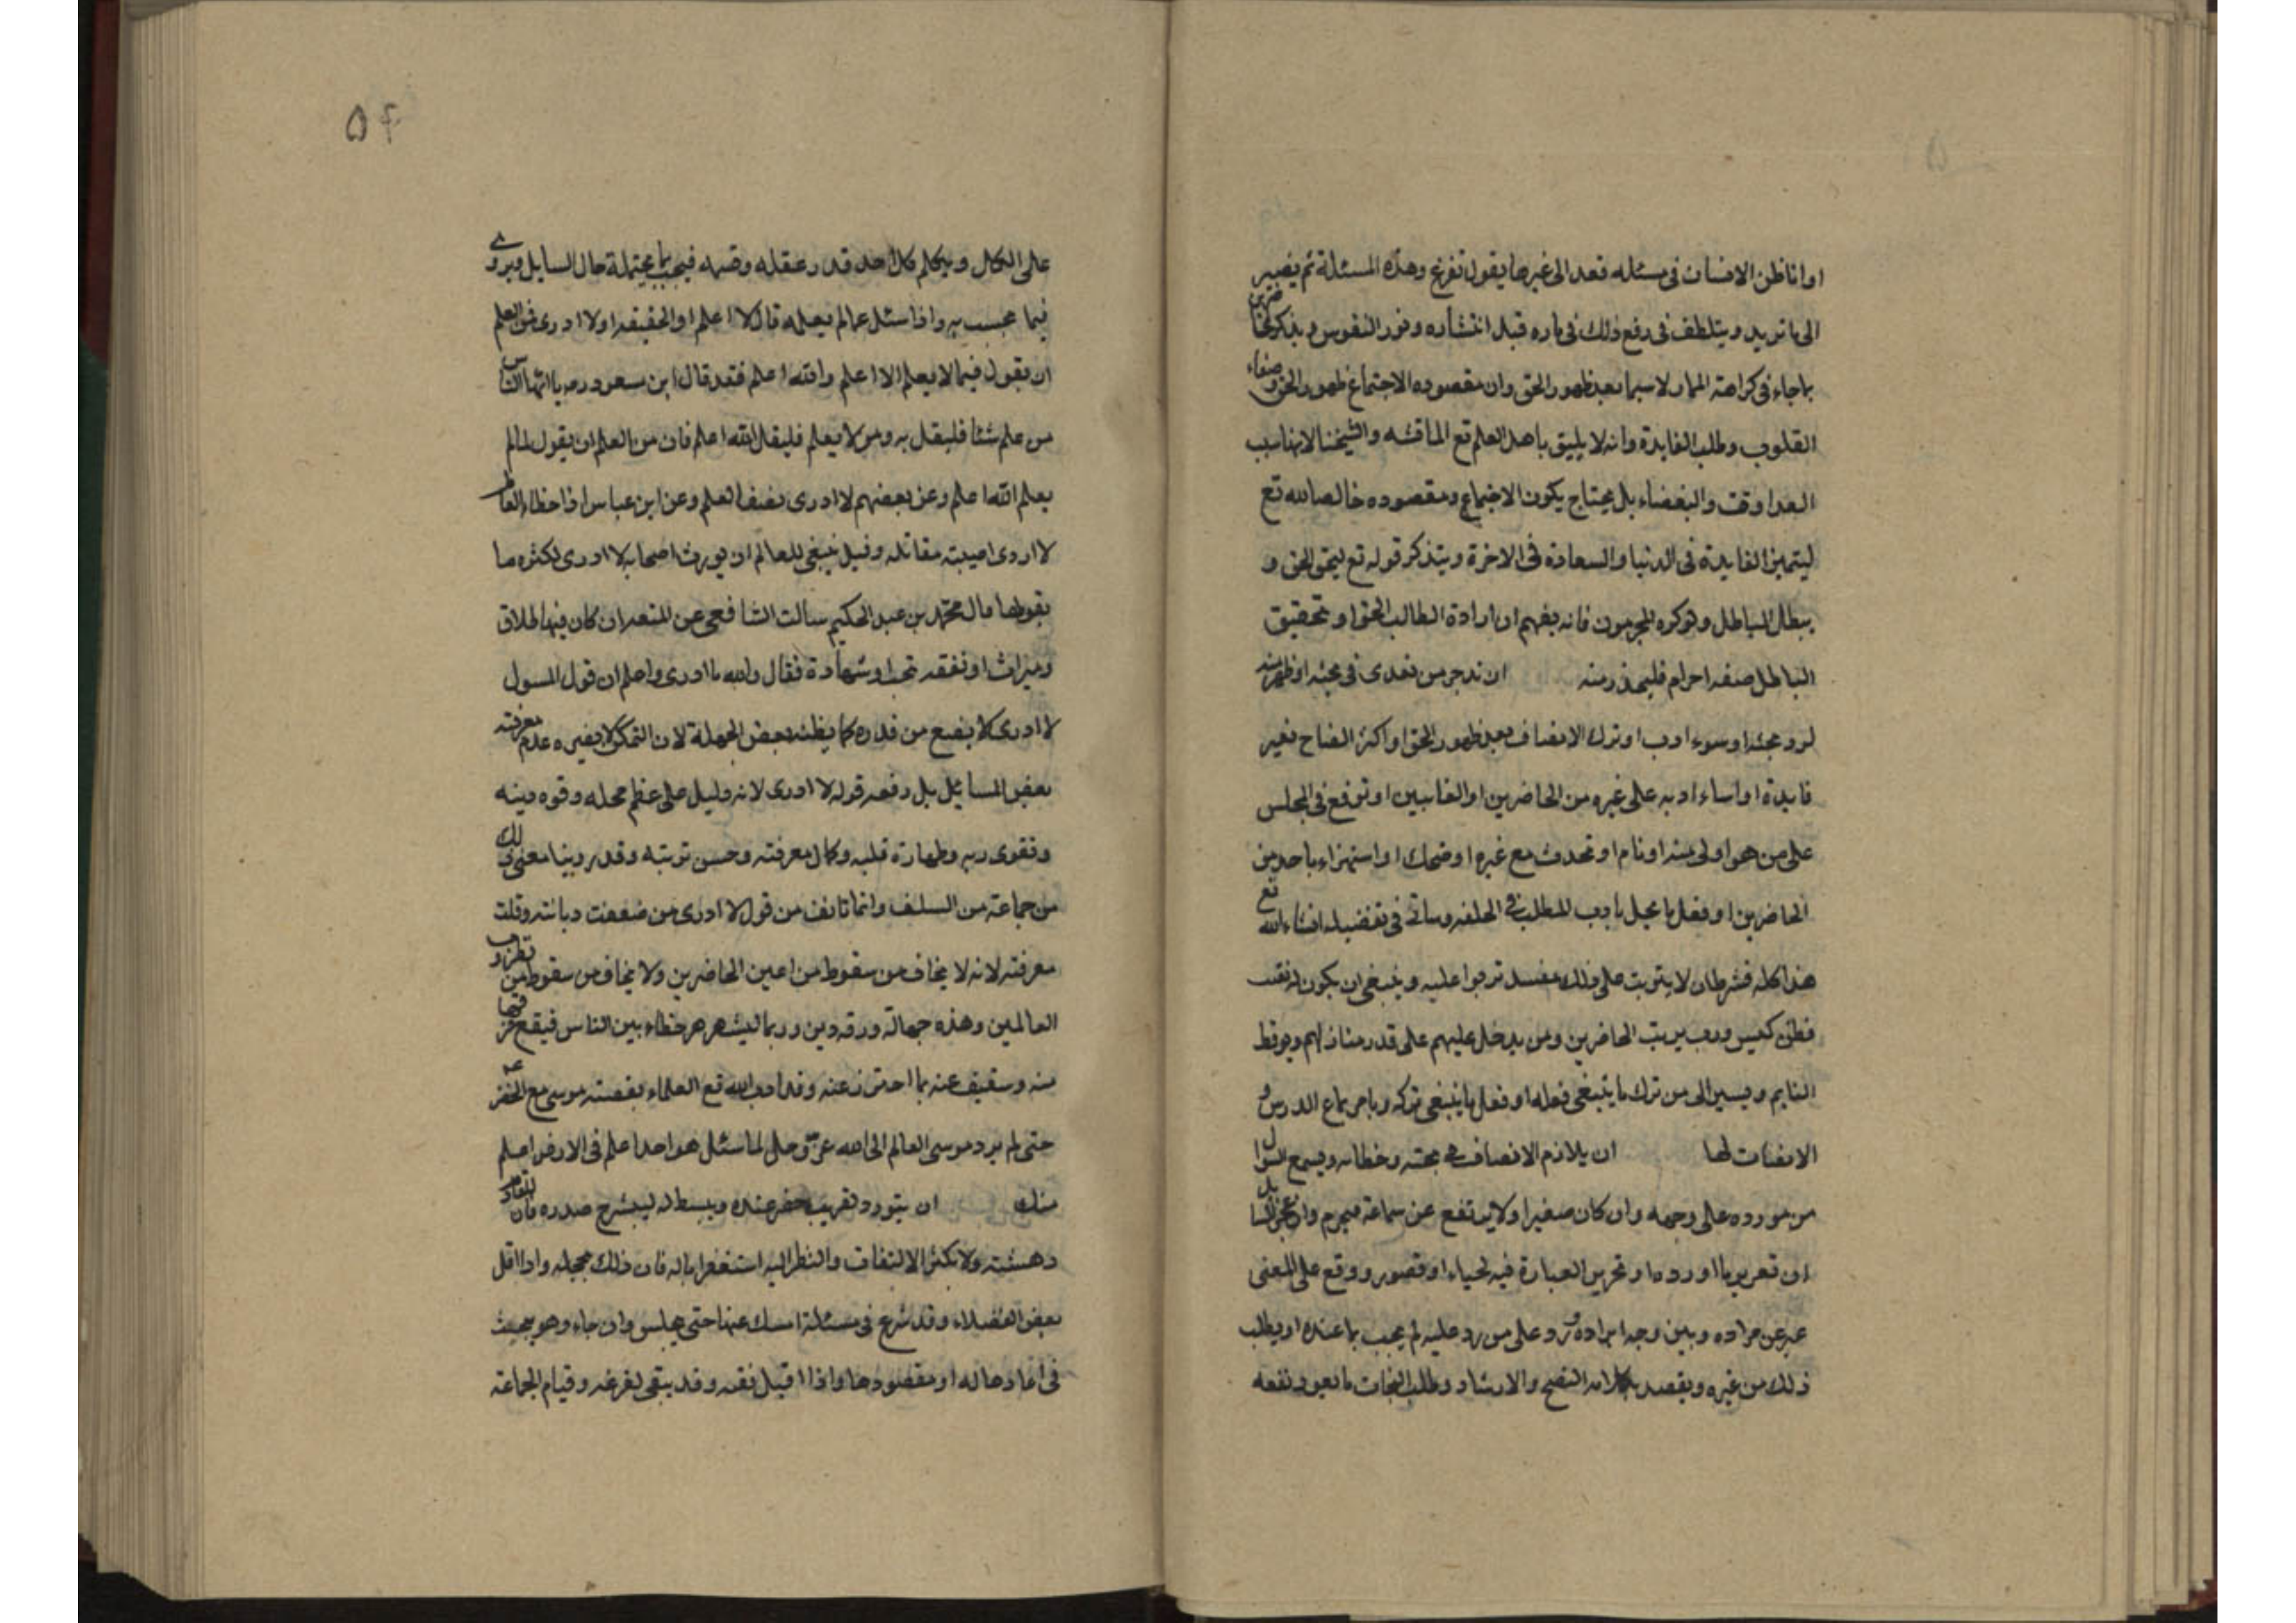 او اناظن الانسان فی مسئله فعد الی غیرها یقول تفرغ وهذه المسئلة ثم یفییر
الی ما ترید ویتلطف فی رفع ذلك فی باره قبل انتشاره وفور النفوس ویذکر
بما جاء فی کراهته المار ولا سیما بعد ظهور الحق وان مقصوده الاجتماع ظهور الحق وصفاء
القلوب وطلب الفایدة وانه لا یلیق باهل العلم تع الماقشه والشیخنا لانهاسب
العداوت والبغضاء بل یحتاج یکون الاجتماع ومقصوده خالصا لله تع
لیتمین الفایدة فی الدنیا والسعادة فی الاخرة ویتذکر قوله تع لیحق الحق و
یبطل الباطل ولو کره المجرمون فانه یفهم ان ارادة الطالب الحق او تحقیق
الباطل صفه احرام فلیحذر منه ان تدجر من تعدی فی بحثه او ظهر منه
لرد بحثه او سوء ادب او ترك الانصاف بعد ظهور الحق او اکثر الصاح بغیر
فایدة او اساء ادبه علی غیره من الحاضرین او الغایبین او ترفع فی المجلس
علی من هو اولی منه او نام او تحدث مع غیره او ضحك او استهزاء باحد من
الحاضرین او فعل ما یخل بادب للطلب فی الحلقه وساتی فی تفضیله انشاءالله تع
هذا کله فشرطان لا یترتب علی ذلك مفسد تربوا علیه وینبغی ان یکون له نقیب
فطن کیس ودب یرتب الحاضرین ومن یدخل علیهم علی قدر منازلهم ویوقط
النایم ویسیر الی من ترك ما ینبغی فعله او فعل ما ینبغی ترکه ویامر بماع الدرس و
الانصات لها ان یلازم الانصاف فی بحثه وخطابه ویسمع السوال
من مورده علی وجهه وان کان صغیرا ولا یرتفع عن سماعة فیحرم واذ عجز السایل
ان تعریر ما اورده او تحریر العبارة فیه لحیاء او قصور ووقع علی المعنی
عبر عن مراده وبین وجه ایراده ورد علی من رد علیه لم یجیب بما عنده او یطلب
ذلك من غیره ویقصد بکلامه النصح والارشاد وطلب النجات ما یعود نفعه
۵۴
علی الکل ویکلم کل احد قدر عقله وفهمه فیجیب بما یحتمله حال السایل ویروی
فیما یجیب به واذا سئل عمالم یعلمه قال لا اعلم او الحقیقه او لا ادری فمن العلم
ان یقول فیما لا یعلم الا اعلم والله اعلم فقد قال ابن مسعود رض یا ایها الناس
من علم شئا فلیقل به ومن لا یعلم فلیقل الله اعلم فان من العلم ان یقول لمالم
یعلم الله اعلم وعن بعضهم لا ادری نصف العلم وعن ابن عباس اذا اخطاء العالم
لا اردی اصیبته مقاتله وقیل ینبغی للعالم ان یورث اصحابه لا ادری لکثره ما
یقولها مال محمد بن عبد الحکیم سالت الشافعی عن المتعه ان کان فیها طلاق
ومیراث او نفقه تجب او شهادة فقال والله ما ادری واعلم ان قول المسول
لا ادری لا یضع من قدره کما یظنه بعض الجهلة لان التمکن لا یضره عدم معرفته
بعض المسایل بل رفعه قوله لا ادری لانه دلیل علی عظم محله وقوه دینه
وتقوی ربه وطهارة قلبه وکمال معرفته وحسن تربته وقد روینا معنی ذلك
من جماعته من السلف وانما تانف من قول لا ادری من ضعفت دیانته وقلت
معرفته لانه لا یخاف من سقوط من اعین الحاضرین ولا یخاف من سقوط من نظر رب
العالمین وهذه جهالة ورقه دین وربما لیشهر هر خطاء بین الناس فیقع فیما فر
منه وسقیف عنه بما احترز عنه وقد ادب الله تع العلماء بقصته موسی مع الخضر عه
حتی لم یرد موسی العالم الی الله عز وجل لما سئل هو احدا علم فی الارض اعلم
منك ان یتورد لغریب حضر عنده ویبسط له لیشرح صدره فان للقادم
دهشته ولا یکثر الالتفات والنظر الیه استغفرا باله فان ذلك مخجله واذا اقل
بعض الفضلاء وقد شرع فی مسئلة امسك عنها حتی یجلس وان جاء وهو بحیث
فی اعادها له او مقصودها واذا اقبل فقه وقد یبقی لفرغه وقیام الجماعته